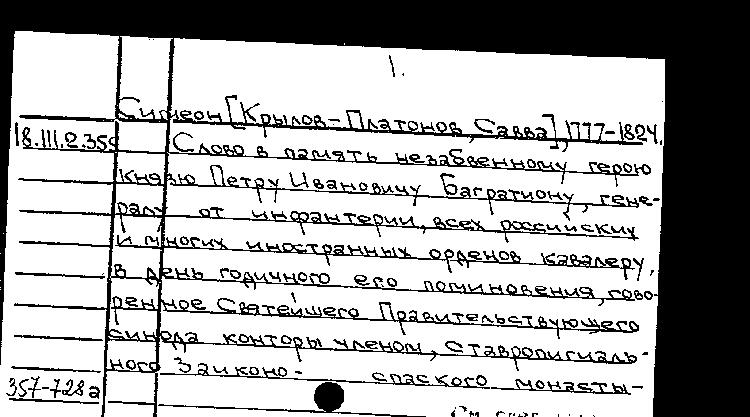 1.
Симеон [Крылов-Платонов, Савва], 1777-1824.
18.III.2.35 Слово в память незабвенному герою
князю Петру Ивановичу Багратиону, гене-
ралу от инфантерии, всех российских
и многих иностранных орденов кавалеру,
в день годичного его поминовения, гово-
ренное Святейшего Правительствующего
синода конторы членом, ставропигиаль-
ного Заиконо- спаского монасты-
357-728а
См.